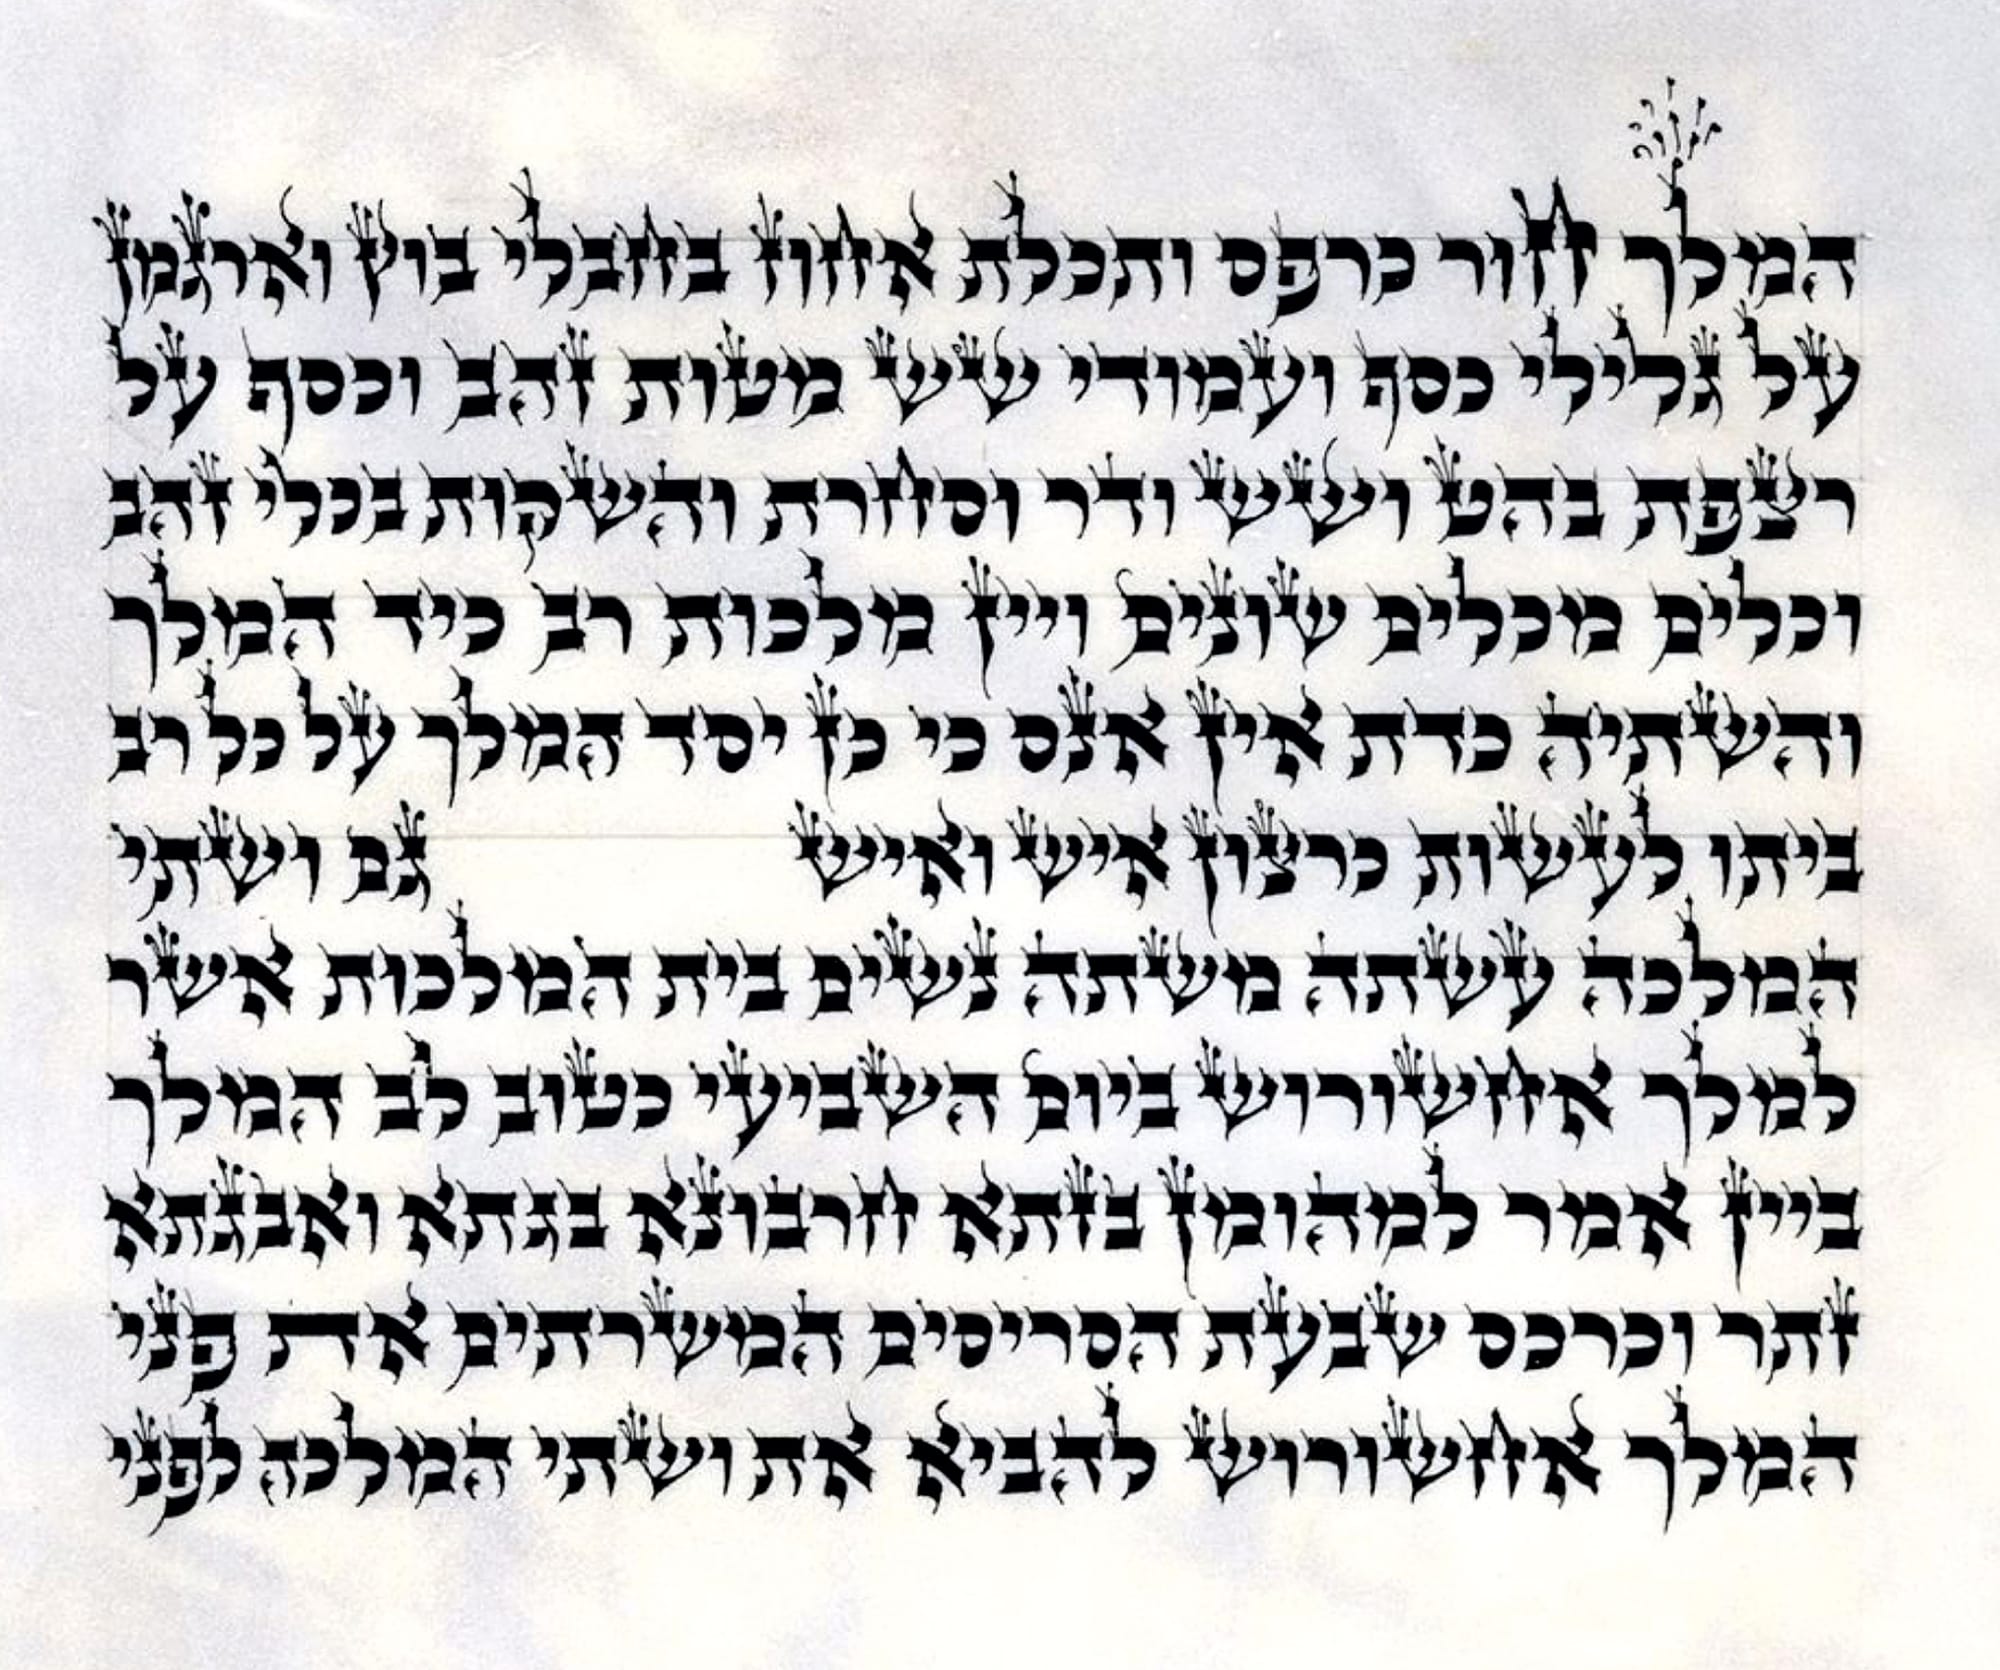 המלך חור כרפס ותכלת אחוז בחבלי בוץ וארגמן
על גלילי כסף ועמודי שש מטות זהב וכסף על
רצפת בהט ושש ודר וסחרת והשקות בכלי זהב
וכלים מכלים שונים ויין מלכות רב כיד המלך
והשתיה כדת אין אנס כי כן יסד המלך על כל רב
ביתו לעשות כרצון איש ואיש גם ושתי
המלכה עשתה משתה נשים בית המלכות אשר
למלך אחשורוש ביום השביעי כטוב לב המלך
ביין אמר למהומן בזתא חרבונא בגתא ואבגתא
זתר וכרכס שבעת הסריסים המשרתים את פני
המלך אחשורוש להביא את ושתי המלכה לפני